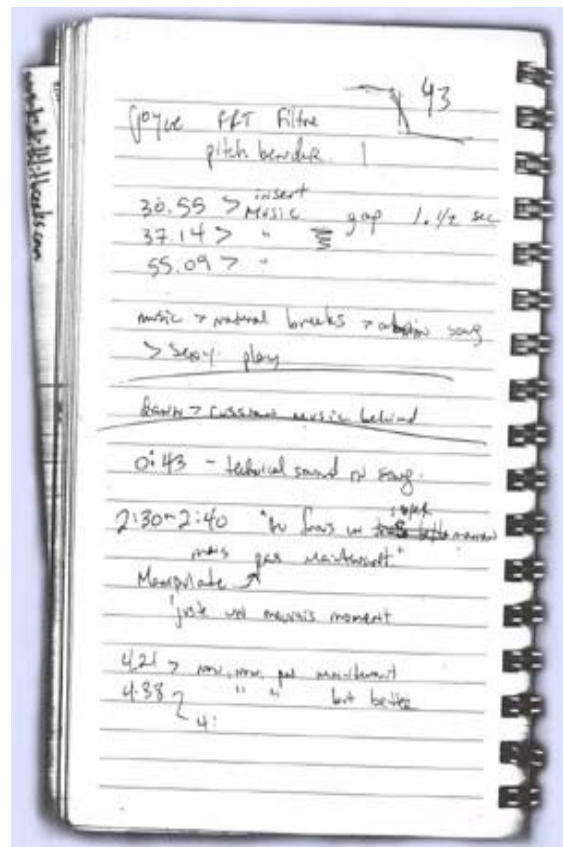 43
Joyce FFT Filtre
pitch bender. |
30.55 > insert Music gap 1.1/2 sec
37.14 > "
55.09 > "
music > natural breaks > song
> sexy. play
> russian music behind
0:43 - technical sound song.
2:30 - 2:40 "tu
mais pas maintenant."
Manipulate
"juste un mauvais moment
4.21 > non, non, pas maintenant
4.38 > " " but better
4: